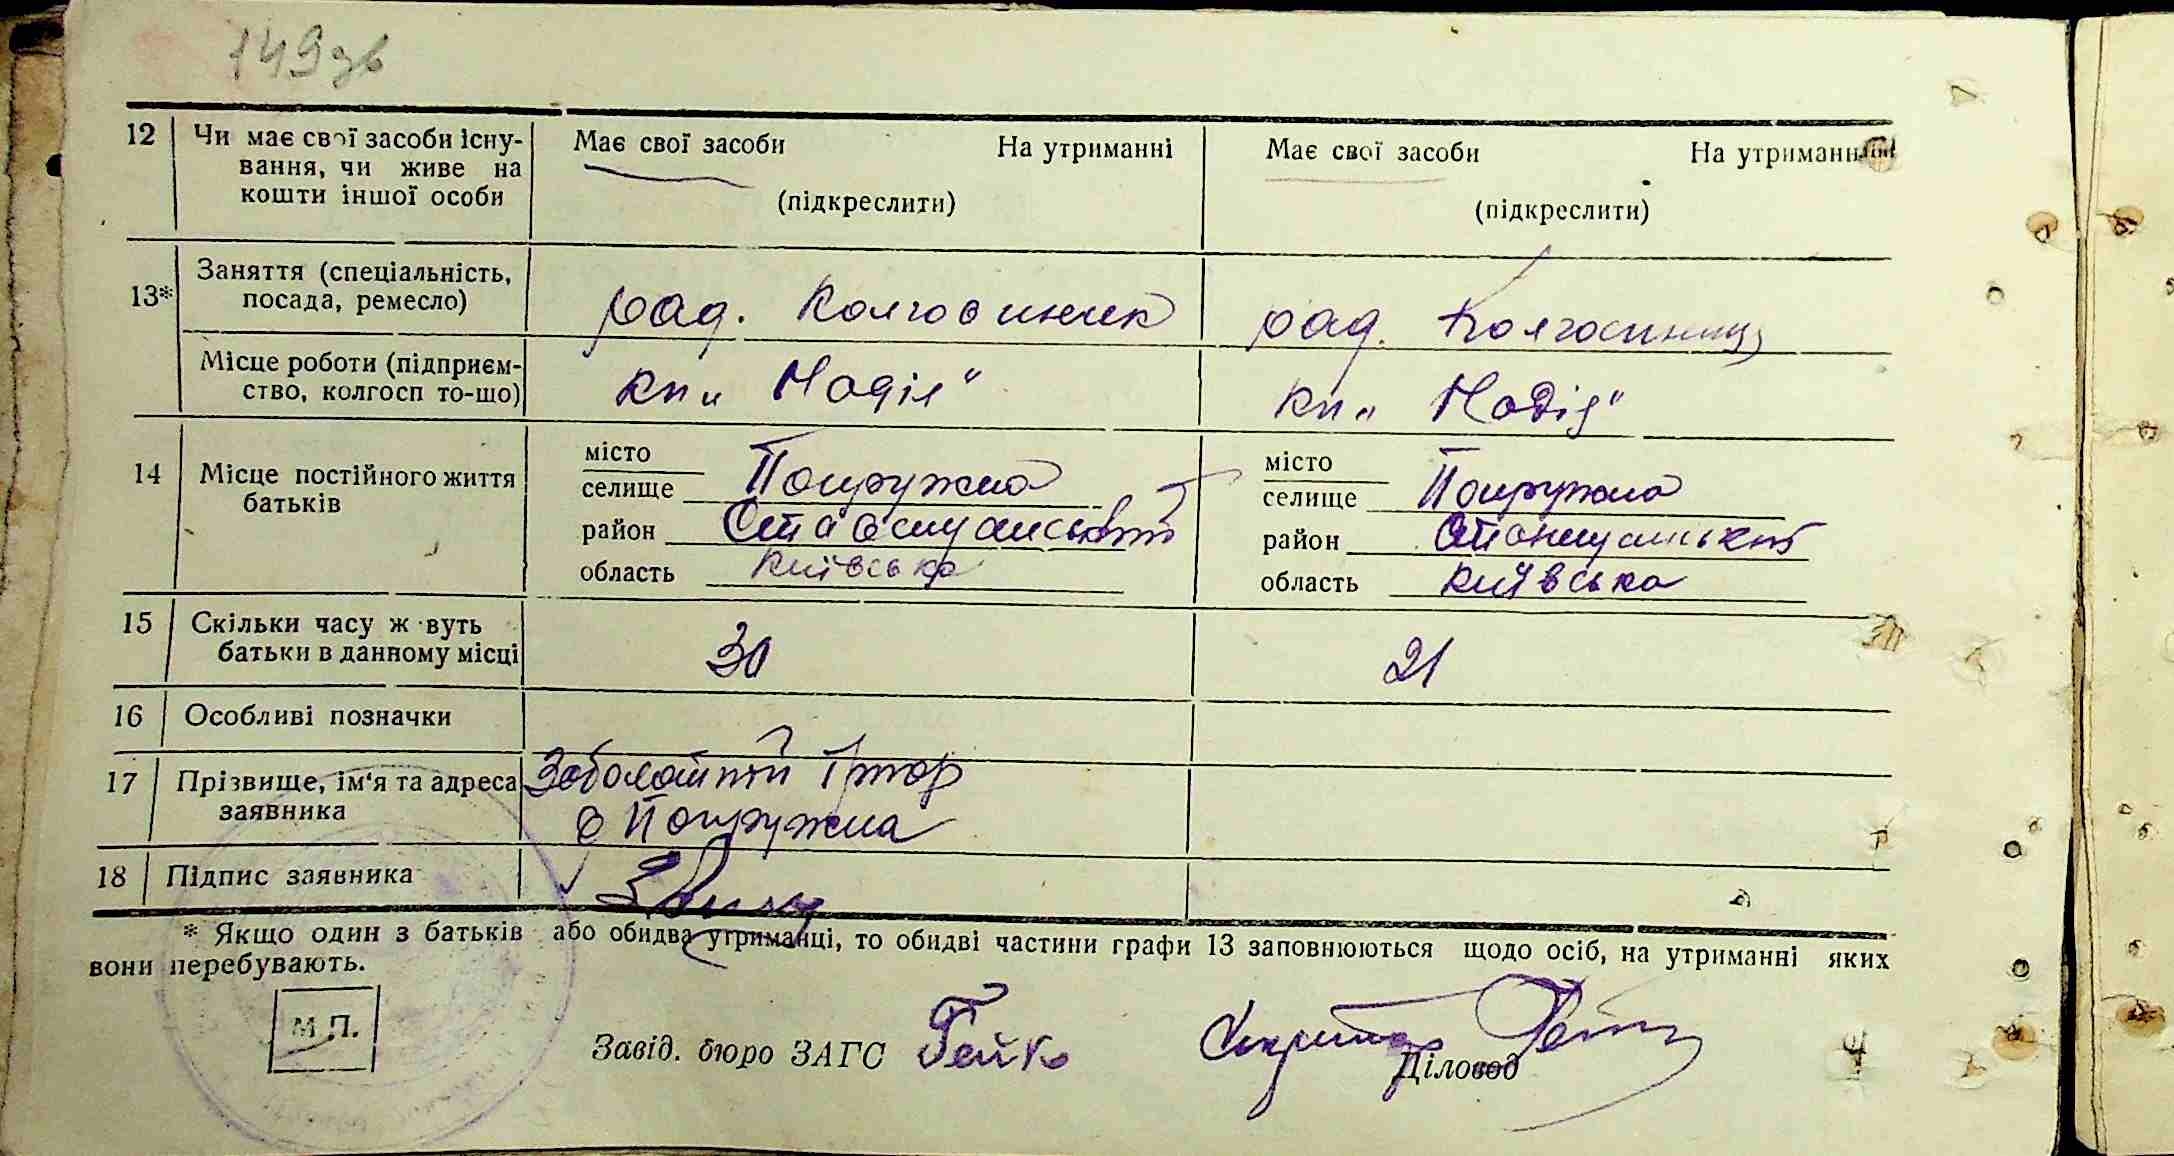 149зв
12 Чи має свої засоби існу- Має свої засоби На утриманні Має свої засоби На утриманні
вання, чи живе на
кошти іншої особи (підкреслити) (підкреслити)
13* Заняття (спеціальність,
посада, ремесло) ряд. Колгоспник ряд. Колгоспниця
Місце роботи (підприєм-
ство, колгосп то-що) кп „Надія“ кп „Надія“
14 Місце постійного життя
батьків
місто місто
селище Попружна селище Попружна
район район
область Київська область Київська
15 Скільки часу ж вуть
батьки в данному місці 30 21
16 Особливі позначки
17 Прізвище, ім'я та адреса
заявника Заболотній
с Попружна
18 Підпис заявника
* Якщо один з батьків або обидва утриманці, то обидві частини графи 13 заповнюються щодо осіб, на утриманні яких
вони перебувають.
М.П.
Завід. бюро ЗАГС Гейко Діловод